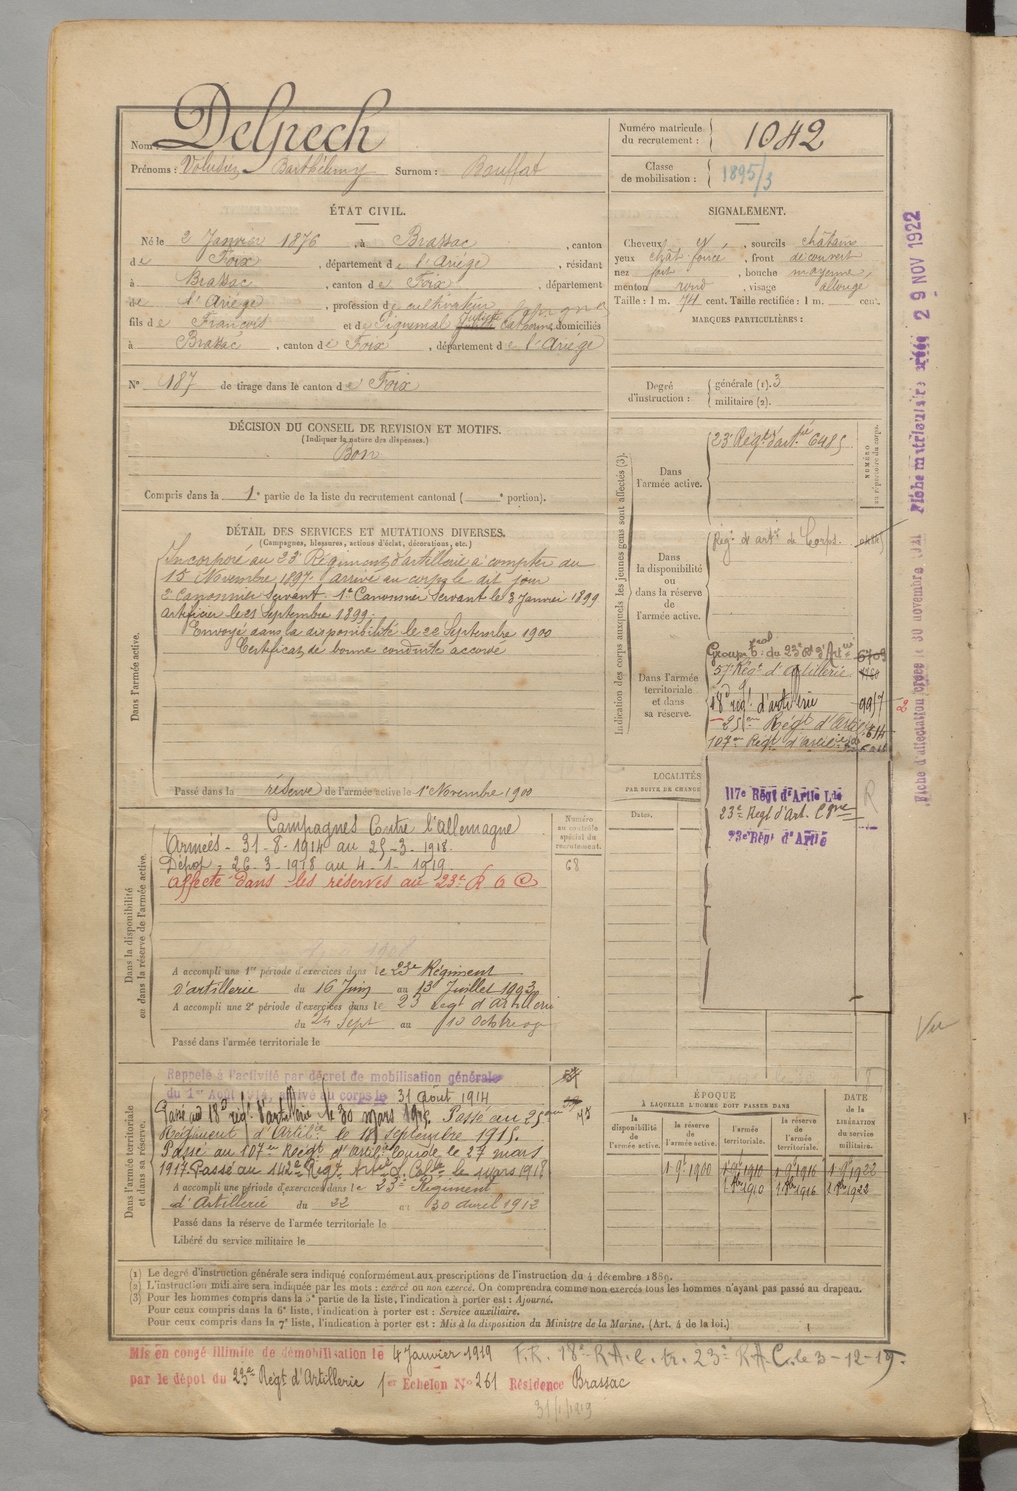 Nom : Delpech
Prénoms : Barthélemy Surnom : Bouffat
Numéro matricule du recrutement : 1042
Classe de mobilisation : 1895/3
ÉTAT CIVIL.
Né le 2 Janvier 1876, à Brassac, canton
de Foix, département de l'Ariège, résidant
à Brassac, canton de Foix, département
de l'Ariège, profession de cultivateur
fils de François et de Piquemal Catherine domiciliés
à Brassac, canton de Foix, département de l'Ariège
N° 187 de tirage dans le canton de Foix
SIGNALEMENT.
Cheveux, sourcils châtains
yeux chât foncé, front découvert
nez fort, bouche moyenne,
menton rond, visage allongé
Taille : 1 m. 74 cent. Taille rectifiée : 1 m. cent.
MARQUES PARTICULIÈRES :
Degré d'instruction : générale (1). 3
militaire (2).
DÉCISION DU CONSEIL DE REVISION ET MOTIFS.
(Indiquer la nature des dispenses.)
Bon
Compris dans la 1e partie de la liste du recrutement cantonal ( e portion).
DÉTAIL DES SERVICES ET MUTATIONS DIVERSES.
(Campagnes, blessures, actions d'éclat, décorations, etc.)
Dans l'armée active.
Incorporé au 23e Régiment d'artillerie à compter du
15 Novembre 1897 arrivé au corps le dit jour
2e Canonnier Servant. 1er Canonnier Servant le 3 Janvier 1899
artificier le 21 Septembre 1899.
Envoyé dans la disponibilité le 22 Septembre 1900
Certificat de bonne conduite accordé
Passé dans la réserve de l'armée active le 1er Novembre 1900
Indication des corps auxquels les jeunes gens sont affectés (3).
NUMÉRO au répertoire du corps.
Dans l'armée active.
23e Régt d'artie 6485
Dans la disponibilité ou dans la réserve de l'armée active.
Régt d'artie de Corps.
Dans l'armée territoriale et dans sa réserve.
Groupe tral du 23e Rt d'Artie 6709
57e Régt d'Artillerie
18e régt d'artillerie 9957
25eme Régt d'Artie
107eme Régt d'artillie
117e Régt d'Artie Lde
23e Regt d'Art. Cgne
23e Régt d'Artie
R
LOCALITÉS
PAR SUITE DE CHANGE
Dates.
Dans la disponibilité ou dans la réserve de l'armée active.
Numéro au contrôle spécial du recrutement.
68
Campagnes Contre l'allemagne
Armées - 31-8-1914 au 25-3-1918.
Dépôt - 26-3-1918 au 4-1-1919.
affecté dans les réserves au 23e R A C
A accompli une 1re période d'exercices dans le 23e Régiment
d'artillerie du 16 Juin au 13 Juillet 1903
A accompli une 2e période d'exercices dans le 23 régt d'Artillerie
du 24 Sept au 10 Octobre
Passé dans l'armée territoriale le
Dans l'armée territoriale et dans sa réserve.
Rappelé à l'activité par décret de mobilisation générale
du 1er Août 1914, arrivé au corps le 31 Août 1914
Passé au 18e régt d'artillerie le 30 mars 1915. Passé au 25eme
Régiment d'Artillie le 18 Septembre 1915.
Passé au 107eme Régt d'artillie lourde le 27 mars
1917. Passé au 142e Régt Artie Colle le mars 1918
A accompli une période d'exercices dans le 23e Régiment
d'Artillerie du 22 au 30 avril 1912
Passé dans la réserve de l'armée territoriale le
Libéré du service militaire le
ÉPOQUE
À LAQUELLE L'HOMME DOIT PASSER DANS
la disponibilité de l'armée active.
la réserve de l'armée active.
l'armée territoriale.
la réserve de l'armée territoriale.
DATE de la LIBÉRATION du service militaire.
1 9e 1900 1 9e 1910 1 9e 1916 1 9e 1922
1 8re 1910 1 8re 1916 1 8re 1922
(1) Le degré d'instruction générale sera indiqué conformément aux prescriptions de l'instruction du 4 décembre 1889.
(2) L'instruction militaire sera indiquée par les mots : exercé ou non exercé. On comprendra comme non exercés tous les hommes n'ayant pas passé au drapeau.
(3) Pour les hommes compris dans la 5e partie de la liste, l'indication à porter est : Ajourné.
Pour ceux compris dans la 6e liste, l'indication à porter est : Service auxiliaire.
Pour ceux compris dans la 7e liste, l'indication à porter est : Mis à la disposition du Ministre de la Marine. (Art. 4 de la loi.)
Mis en congé illimité de démobilisation le 4 Janvier 1919 F.R. 18e R.A.C. tr. 23e R.A.C. le 3-12-19.
par le dépôt du 23e Régt d'Artillerie 1er Echelon N° 261 Résidence Brassac
31/1/1919
Vu
Fiche matriculaire créée 29 NOV 1922
Fiche d'affectation créée le 30 novembre